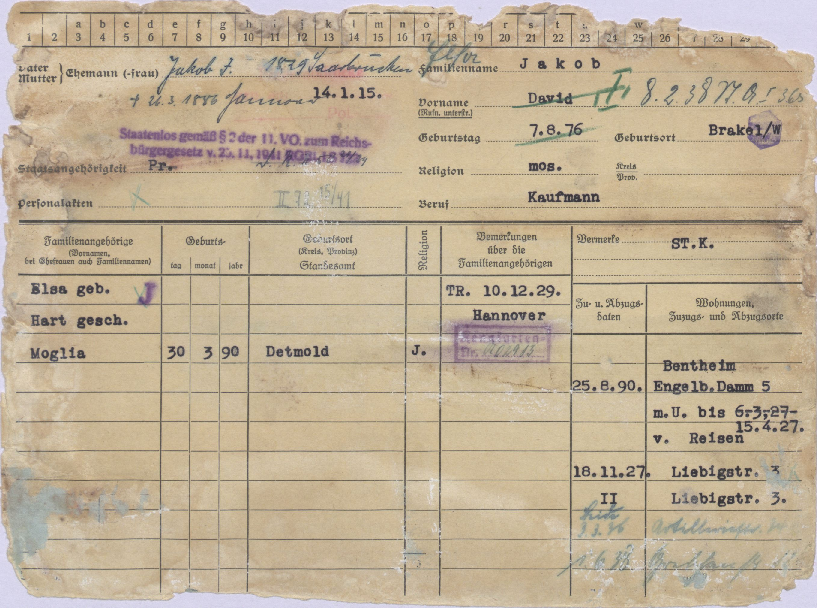 a b c d e f g h i k l m n o p q r s t u w
1 2 3 4 5 6 7 8 9 10 11 12 13 14 15 16 17 18 19 20 21 22 23 24 25 26 27 28 29
Vater
Mutter
Ehemann (-frau) Jakob J. 1849 Saarbrücken
Familienname Jakob
† 26.3.1886 Hannover 14.1.15.
Vorname David † 8.2.38
(Rufn. unterstr.)
Staatenlos gemäß § 2 der 11. VO. zum Reichs-
bürgergesetz v. 25.11.1941
Geburtstag 7.8.76 Geburtsort Brakel/W
Staatsangehörigkeit Pr.
Religion mos. Kreis
Prov.
Personalakten
Beruf Kaufmann
Familienangehörige
(Vornamen,
bei Ehefrauen auch Familiennamen)
Geburts-
tag monat jahr
Geburtsort
(Kreis, Provinz)
Standesamt
Religion
Bemerkungen
über die
Familienangehörigen
Vermerke ST.K.
Elsa geb. J TR. 10.12.29.
Hart gesch. Hannover
Moglia 30 3 90 Detmold J.
Kennkarten-
Nr.
Zu- u. Abzugs-
daten
Wohnungen,
Zuzugs- und Abzugsorte
Bentheim
25.8.90. Engelb.Damm 5
m.U. bis 6.3.27-
15.4.27.
v. Reisen
18.11.27. Liebigstr. 3
II Liebigstr. 3.